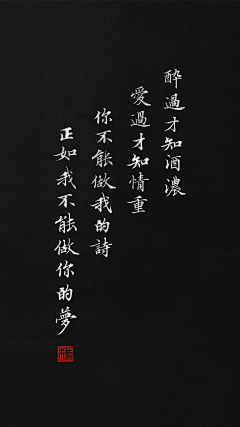 醉過才知酒濃
愛過才知情重
你不能做我的詩
正如我不能做你的夢